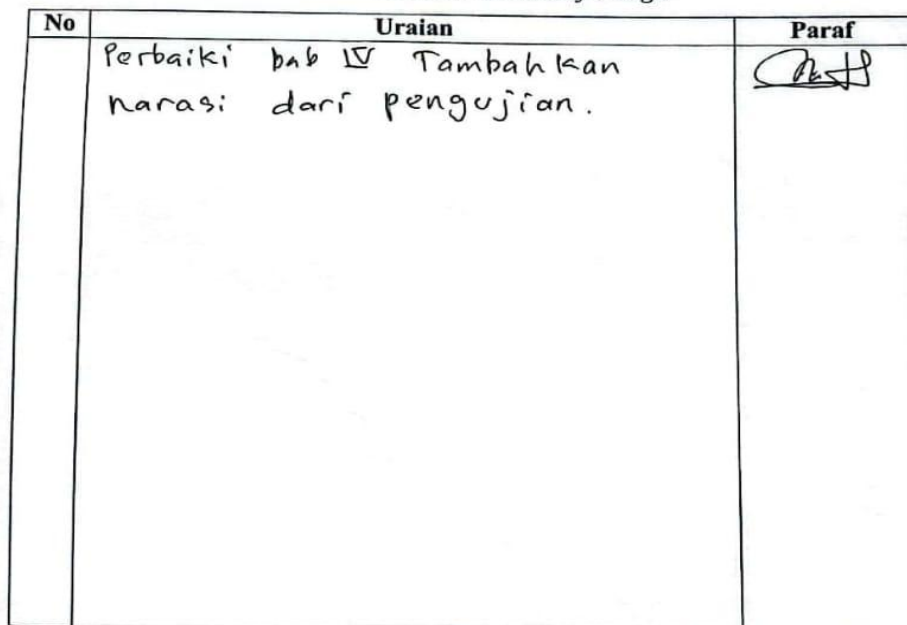 No Uraian Paraf
Perbaiki bab IV Tambahkan
narasi dari pengujian.